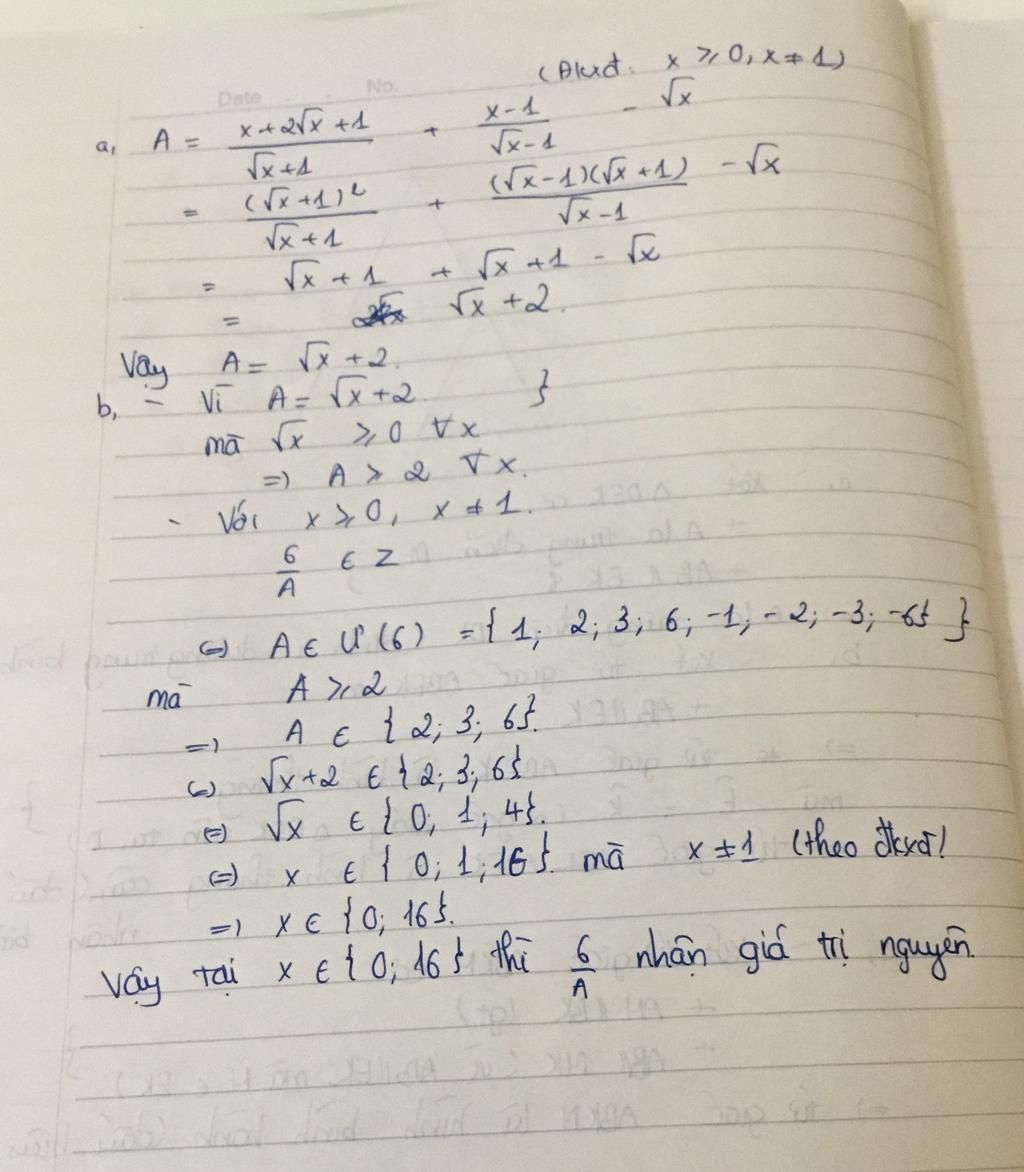 Date No.
(Đkxđ: x ≥ 0, x ≠ 1)
a, A = (x + 2√x + 1)/(√x + 1) + (x - 1)/(√x - 1) - √x
= (√x + 1)²/(√x + 1) + (√x - 1)(√x + 1)/(√x - 1) - √x
= √x + 1 + √x + 1 - √x
= √x + 2.
Vậy A = √x + 2.
b, - Vì A = √x + 2. }
mà √x ≥ 0 ∀x
=> A ≥ 2 ∀x.
- Với x ≥ 0, x ≠ 1.
6/A ∈ Z
<=> A ∈ Ư(6) = {1; 2; 3; 6; -1; -2; -3; -6} }
mà A ≥ 2
=> A ∈ {2; 3; 6}.
<=> √x + 2 ∈ {2; 3; 6}
<=> √x ∈ {0; 1; 4}.
<=> x ∈ {0; 1; 16}. mà x ≠ 1 (theo đkxđ)
=> x ∈ {0; 16}.
Vậy tại x ∈ {0; 16} thì 6/A nhận giá trị nguyên.